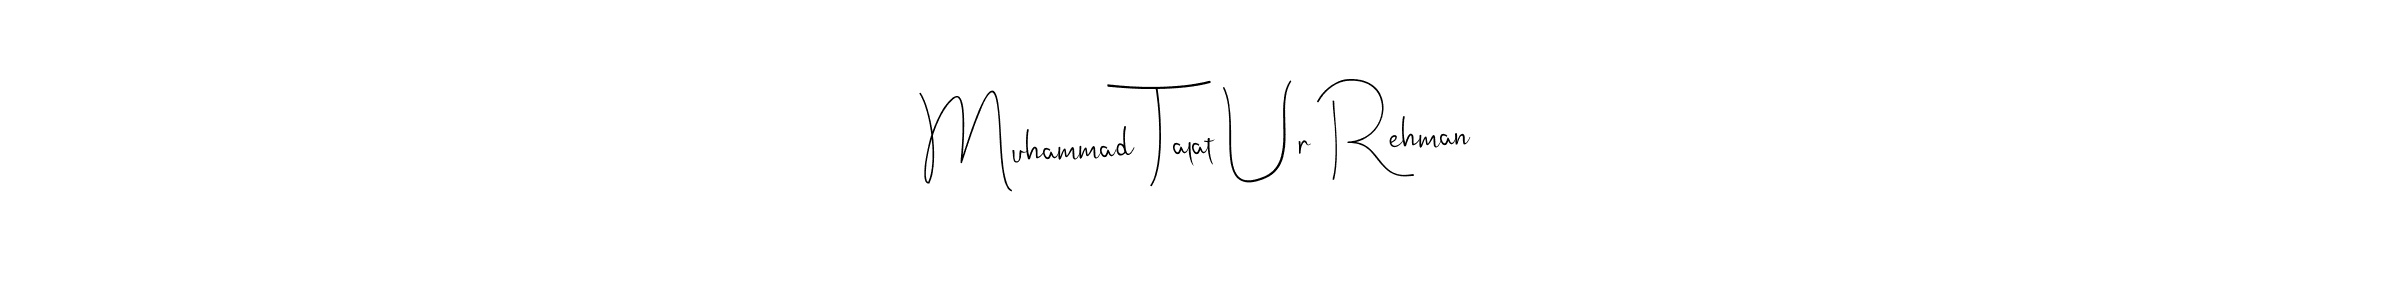 Muhammad Talat Ur Rehman